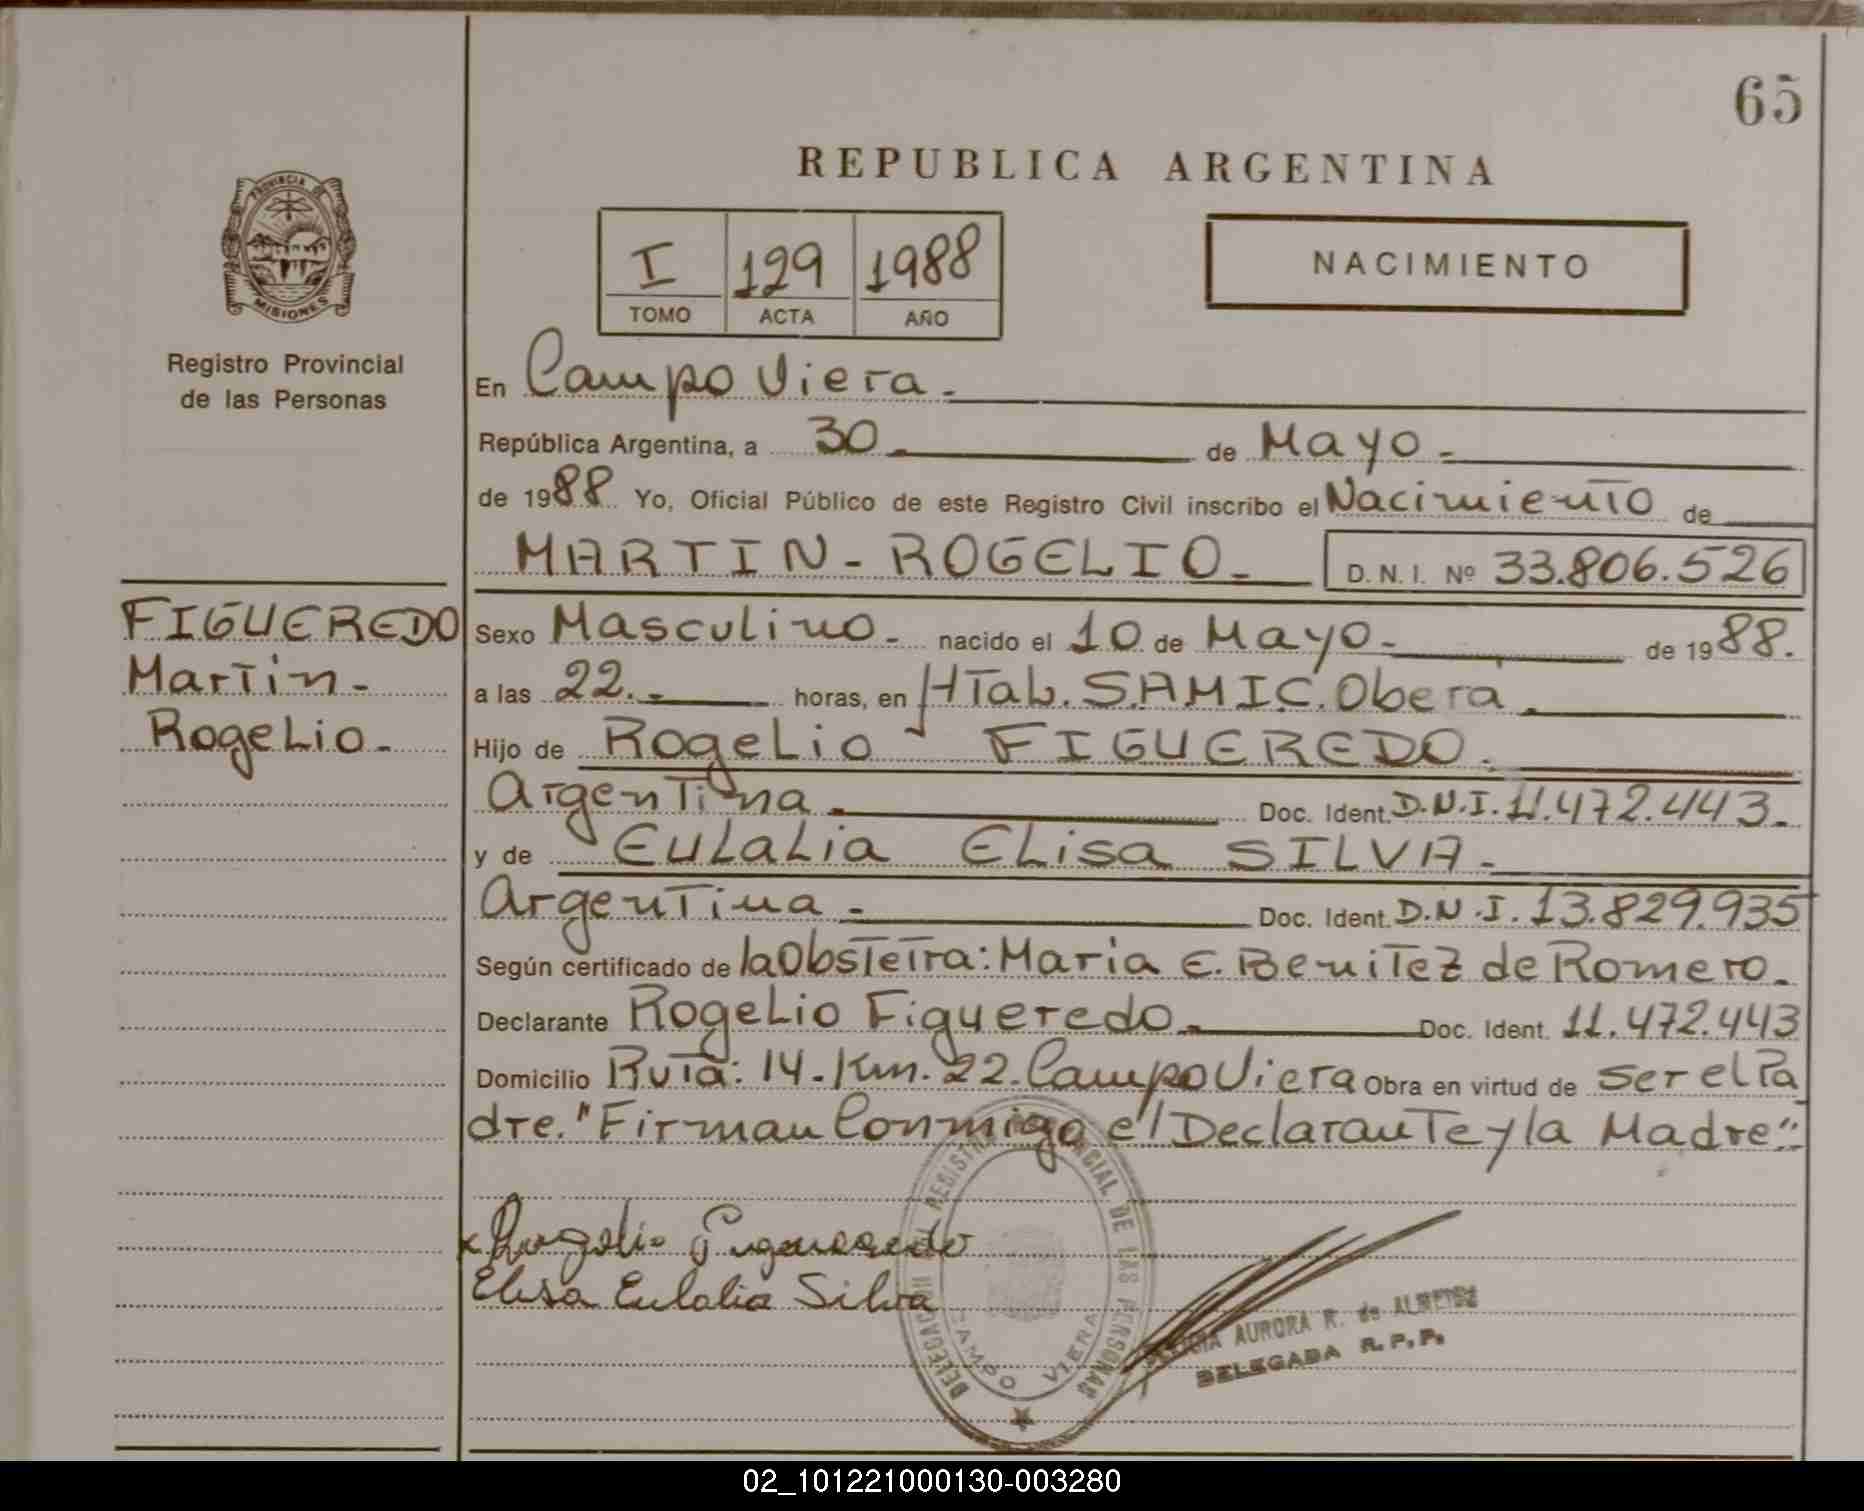 65
REPUBLICA ARGENTINA
PROVINCIA DE
MISIONES
Registro Provincial
de las Personas
I 129 1988
TOMO ACTA AÑO
NACIMIENTO
En Campo Viera.
República Argentina, a 30 de Mayo.
de 1988 Yo, Oficial Público de este Registro Civil inscribo el Nacimiento de
MARTIN-ROGELIO.
D.N.I. Nº 33.806.526
FIGUEREDO
Martin-
Rogelio.
Sexo Masculino. nacido el 10 de Mayo. de 1988.
a las 22. horas, en Htal. S.A.M.I.C. Obera.
Hijo de Rogelio FIGUEREDO.
Argentina. Doc. Ident. D.N.I. 11.472.443.
y de Eulalia Elisa SILVA.
Argentina. Doc. Ident. D.N.I. 13.829.935
Según certificado de la Obstetra: Maria E. Benitez de Romero.
Declarante Rogelio Figueredo. Doc. Ident. 11.472.443
Domicilio Ruta: 14. Km. 22. Campo Viera Obra en virtud de ser el Pa
dre. "Firman Conmigo el Declarante y la Madre":
Rogelio Figueredo
Elisa Eulalia Silva
DELEGACION DEL REGISTRO PROVINCIAL DE LAS PERSONAS
CAMPO VIERA
AURORA R. de ALMEIDA
DELEGADA R.P.P.
02_101221000130-003280